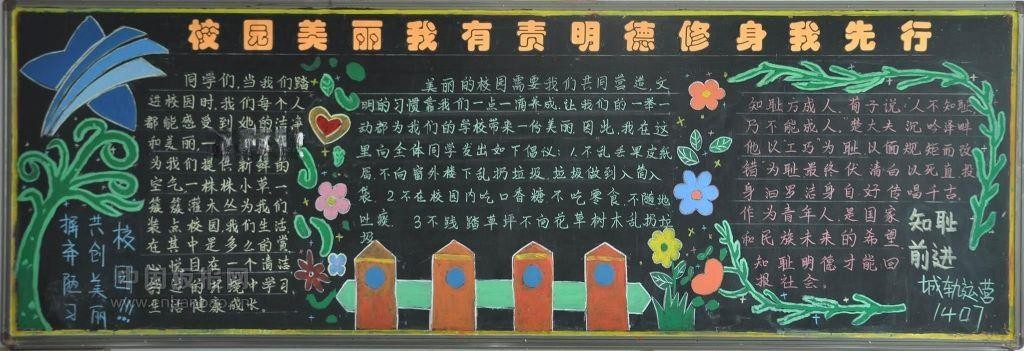 校园美丽我有责明德修身我先行
同学们,当我们踏
进校园时,我们每个人
都能感受到她的洁净
和美丽,一
为我们提供新鲜的
空气,一株株小草,一
簇簇灌木丛为我们
装点校园,我们生活
在其中是多么的赏
悦目,在一个清洁
的环境中学习,
生活健康成长。
美丽的校园需要我们共同营造,文
明的习惯靠我们一点一滴养成,让我们的一举一
动都为我们的学校带来一份美丽,因此,我在这
里向全体同学发出如下倡议:1.不乱丢果皮纸
屑不向窗外楼下乱扔垃圾,垃圾做到入筒入
袋、2.不在校园内吃口香糖不吃零食,不随地
吐痰,3.不践踏草坪不向花草树木乱扔垃
圾
知耻方成人,荀子说:"人不知耻
乃不能成人,楚大夫沉吟泽畔
他以工巧为耻以偭规矩而改
错为耻最终伏清白以死直投
身汩罗洁身自好传唱千古,
作为青年人,是国家
和民族未来的希望
知耻明德才能回
报社会。
校园!!!
共创美丽
摒弃陋习
知耻
前进
城轨运营
1407